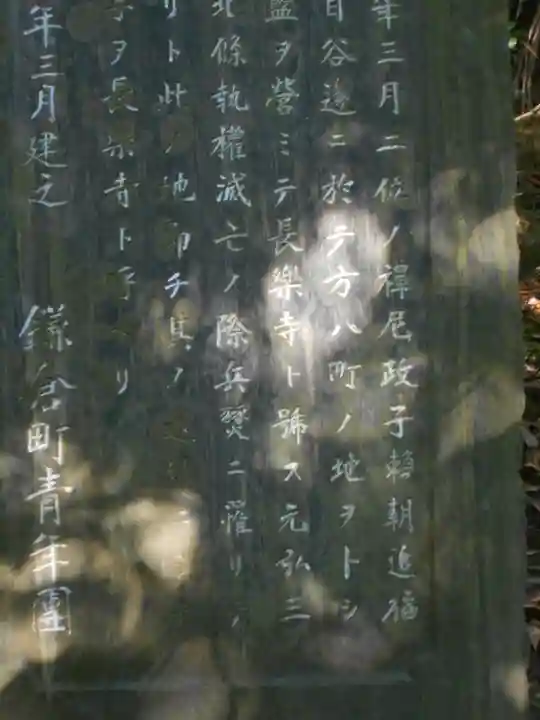 年三月二位ノ禅尼政子賴朝追福
目谷邊ニ於テ方八町ノ地ヲトシ
藍ヲ營ミテ長樂寺ト號ス元弘三
北條執權滅亡ノ際兵燹ニ罹リ
リト此ノ地即チ其ノ
字ヲ長樂寺ト
年三月建之
鎌倉町青年團